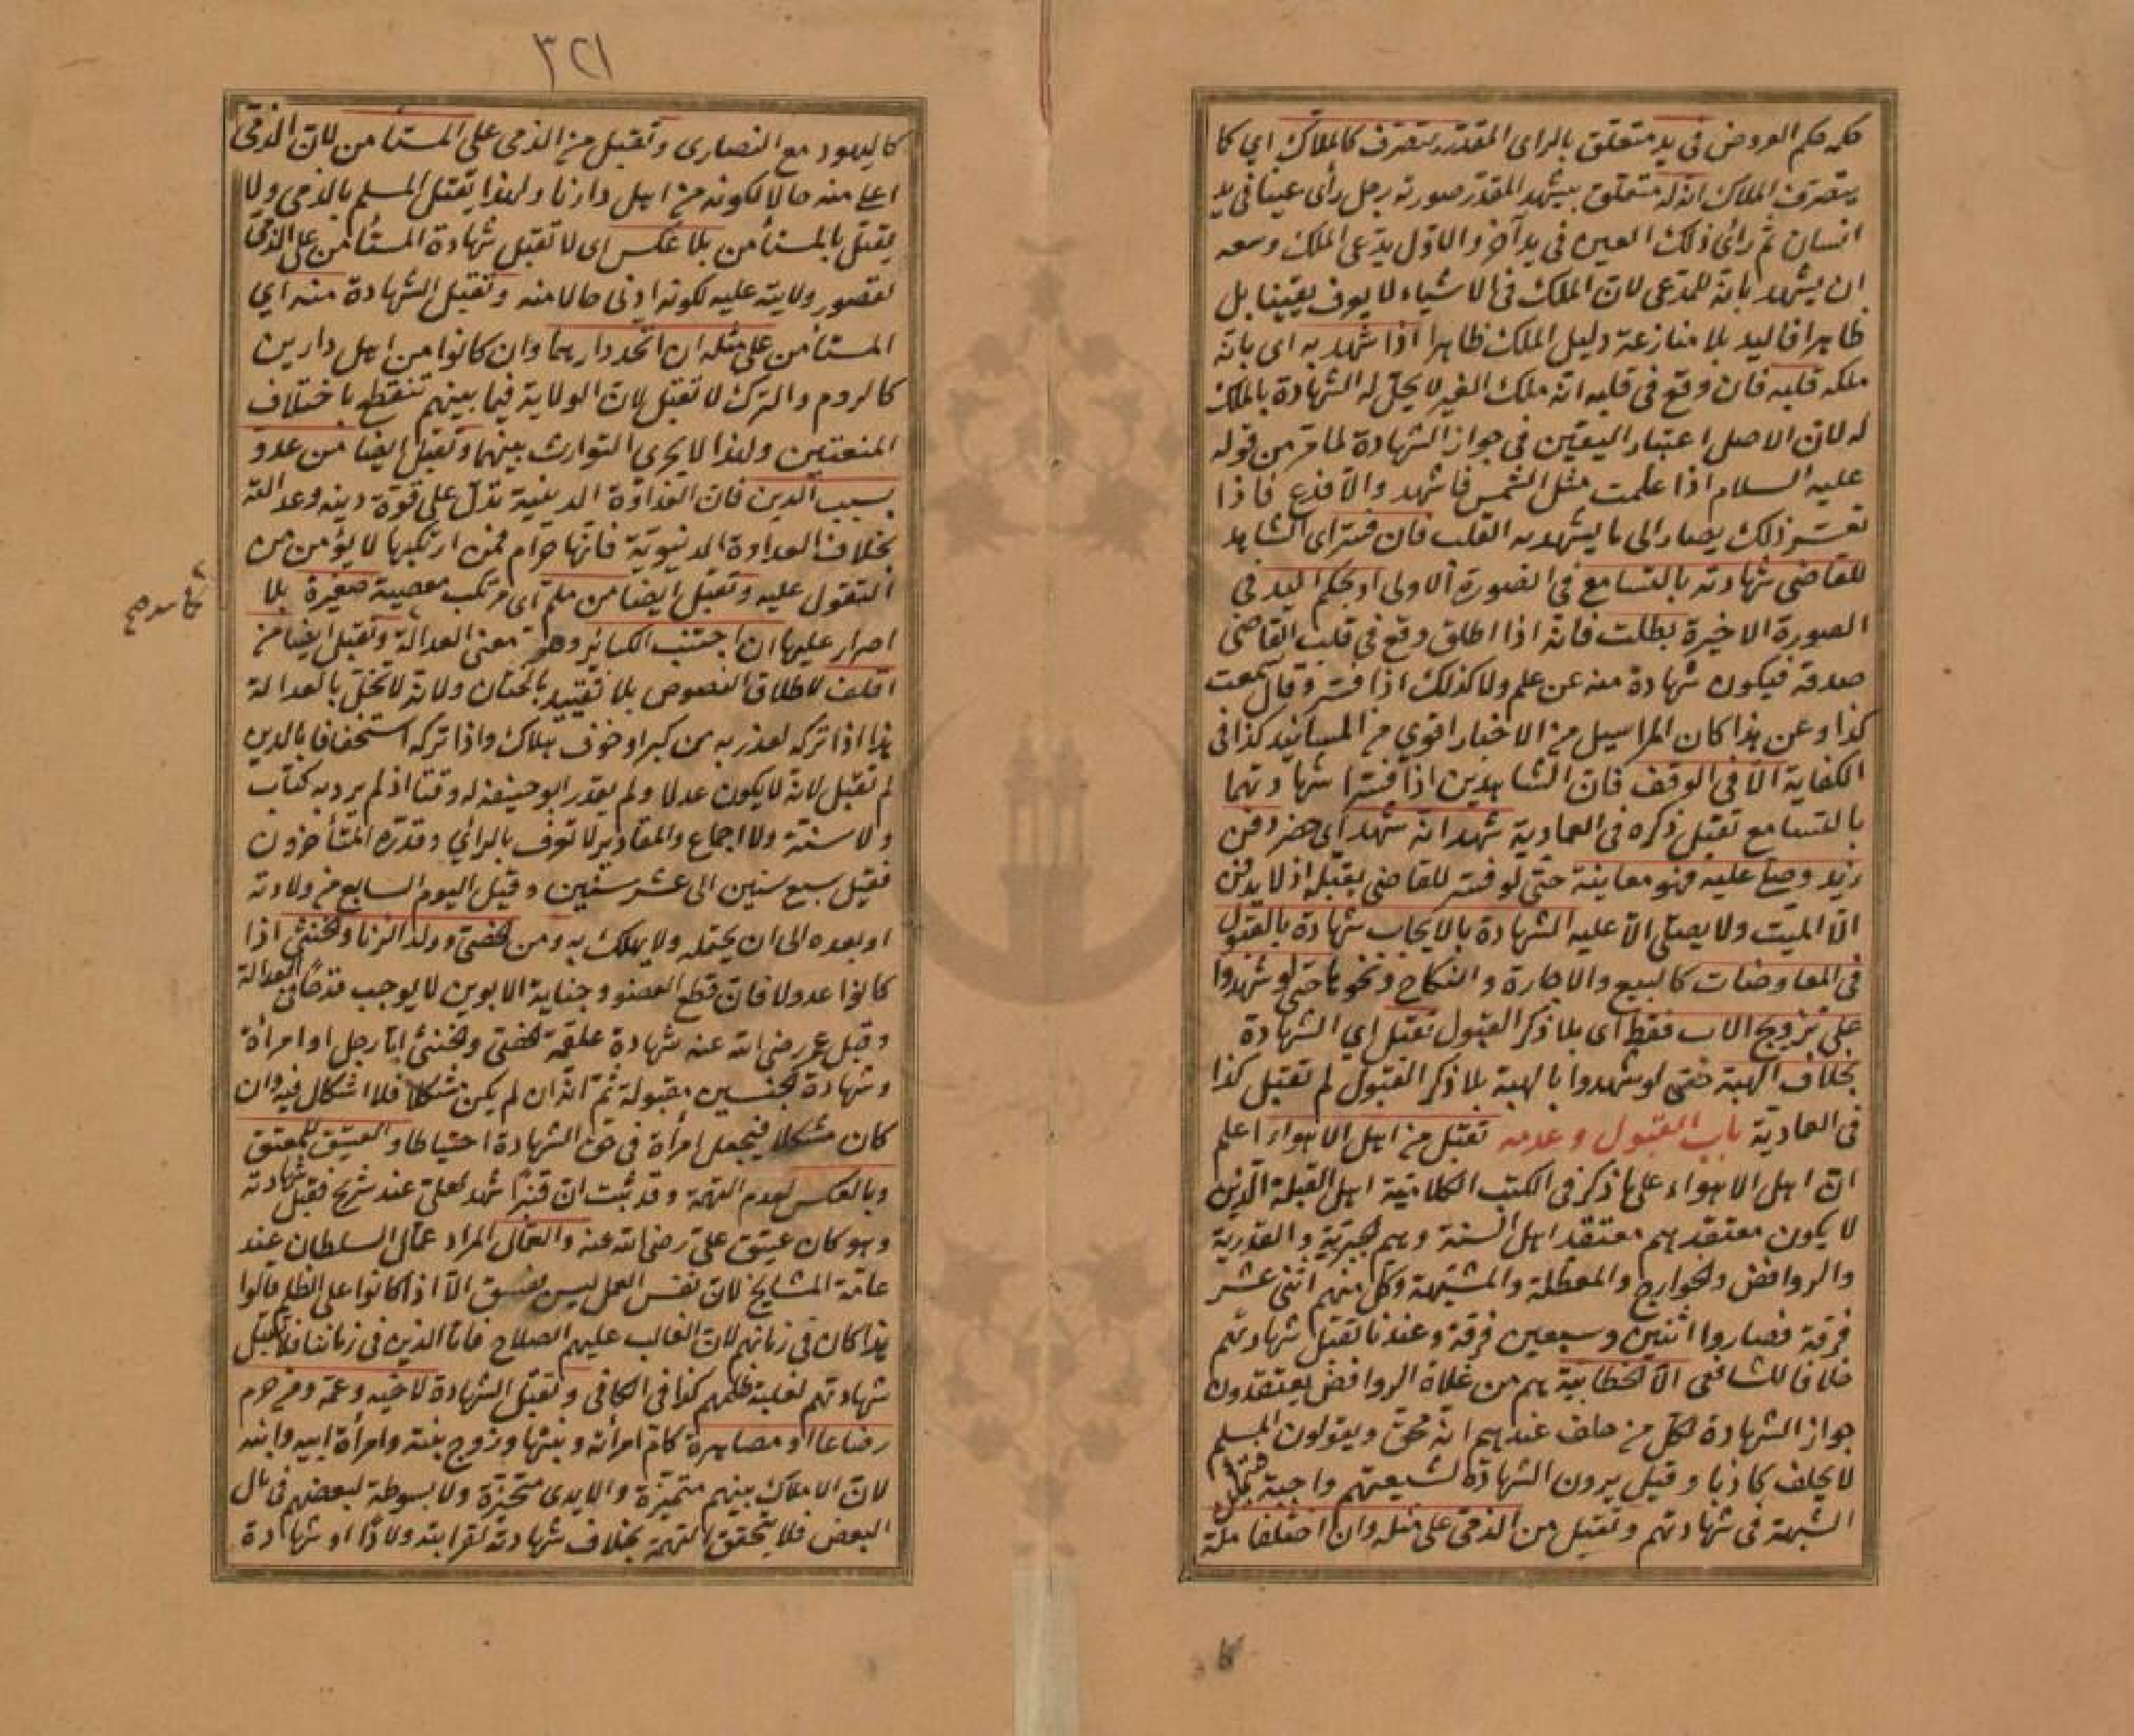 حكمه حكم العروض في يد متعلق بالراى المقدر يتصرف كالملاك اي كا
يتصرف الملاك انه له متعلق بيشهد المقدر صورته رجل رأى عينا في يد
انسان ثم رأى ذلك العين في يد آخر والاول يدعى الملك وسعه
ان يشهد بانه للمدعى لان الملك في الاشياء لا يعرف يقينا بل
ظاهرا فاليد بلا منازعة دليل الملك ظاهرا اذا شهد به اى بانه
ملكه قلبه فان وقع في قلبه انه ملك الغير لا يحل له الشهادة بالملك
له لان الاصل اعتبار اليقين في جواز الشهادة لما مر من قوله
عليه السلام اذا علمت مثل الشمس فاشهد والا فدع فاذا
تعسر ذلك يصار الى ما يشهد به القلب فان فسر اى الشاهد
للقاضى شهادته بالتسامع في الصورة الاولى او بحكم اليد في
الصورة الاخيرة بطلت فانه اذا اطلق وقع في قلب القاضى
صدقه فيكون شهادة منه عن علم ولا كذلك اذا فسر وقال سمعت
كذا وعن هذا كان المراسيل من الاخبار اقوى من المسانيد كذا في
الكفاية الا في الوقف فان الشاهدين اذا فسرا شهادتهما
بالتسامع تقبل ذكره في العمادية شهد انه شهد اى حضر دفن
زيد وصلى عليه فهو معاينة حتى لو فسر للقاضى يقبله اذ لا يدفن
الا الميت ولا يصلى الا عليه الشهادة بالايجاب شهادة بالقبول
في المعاوضات كالبيع والاجارة والنكاح ونحوها حتى لو شهدوا
على تزويج الاب فقط اى بلا ذكر القبول تقبل اي الشهادة
بخلاف الهبة حتى لو شهدوا بالهبة بلا ذكر القبول لم تقبل كذا
في العمادية باب القبول وعدمه تقبل من اهل الاهواء اعلم
ان اهل الاهواء على ما ذكر في الكتب الكلامية اهل القبلة الذين
لا يكون معتقدهم معتقد اهل السنة وهم الجبرية والقدرية
والروافض والخوارج والمعطلة والمشبهة وكل منهم اثنى عشر
فرقة فصاروا اثنين وسبعين فرقة وعندنا تقبل شهادتهم
خلافا للشافعى الا الخطابية هم من غلاة الروافض يعتقدون
جواز الشهادة لكل من حلف عندهم انه محق ويقولون المسلم
لا يحلف كاذبا وقيل يرون الشهادة لشيعتهم واجبة فتمكن
الشبهة في شهادتهم وتقبل من الذمى على مثله وان اختلفا ملة
٣٢١
كاليهود مع النصارى وتقبل من الذمى على المستأمن لان الذمى
اعلى منه حالا لكونه من اهل دارنا ولهذا يقتل المسلم بالذمى ولا
يقتل بالمستأمن بلا عكس اى لا تقبل شهادة المستأمن على الذمى
لقصور ولايته عليه لكونه ادنى حالا منه وتقبل الشهادة منه اي
المستأمن على مثله ان اتحد دارهما وان كانوا من اهل دارين
كالروم والترك لا تقبل لان الولاية فيما بينهم تنقطع باختلاف
المنعتين ولهذا لا يجرى التوارث بينهما وتقبل ايضا من عدو
بسبب الدين فان العداوة الدينية تدل على قوة دينه وعدالته
بخلاف العداوة الدنيوية فانها حرام فمن ارتكبها لا يؤمن من
التقول عليه وتقبل ايضا من ملم اى مرتكب معصية صغيرة بلا
اصرار عليها ان اجتنب الكبائر وهو معنى العدالة وتقبل ايضا من
اقلف لاطلاق النصوص بلا تقييد بالختان ولانه لا تخل بالعدالة
هذا اذا تركه لعذر به من كبر او خوف هلاك واذا تركه استخفافا بالدين
لم تقبل لانه لا يكون عدلا ولم يقدر ابو حنيفة له وقتا اذ لم يرد به كتاب
ولا سنة ولا اجماع والمقادير لا تعرف بالرأي وقدره المتأخرون
فقيل سبع سنين الى عشر سنين وقيل اليوم السابع من ولادته
او بعده الى ان يحتمله ولا يهلك به ومن خصى وولد الزنا وخنثى اذا
كانوا عدولا فان قطع العضو وجناية الابوين لا يوجب قدحا في العدالة
وقبل عمر رضى الله عنه شهادة علقمة الخصى والخنثى اما رجل او امرأة
وشهادة الجنسين مقبولة ثم انه ان لم يكن مشكلا فلا اشكال فيه وان
كان مشكلا فيجعل امرأة في حق الشهادة احتياطا والعتيق للمعتق
وبالعكس لعدم التهمة وقد ثبت ان قنبرا شهد لعلى عند شريح فقبل شهادته
وهو كان عتيق على رضى الله عنه والعمال المراد عمال السلطان عند
عامة المشايخ لان نفس العمل ليس بفسق الا اذا كانوا على الظلم قالوا
هذا كان في زمانهم لان الغالب عليهم الصلاح فاما الذين في زماننا فلا تقبل
شهادتهم لغلبة ظلمهم كذا في الكافى وتقبل الشهادة لاخيه وعمه ومن حرم
رضاعا او مصاهرة كام امرأته وبنتها وزوج بنته وامرأة ابيه وابنه
لان الاملاك بينهم متميزة والايدى متحيزة ولا بسوطة لبعضهم في مال
البعض فلا يتحقق التهمة بخلاف شهادته لقرابته ولادا او شهادة